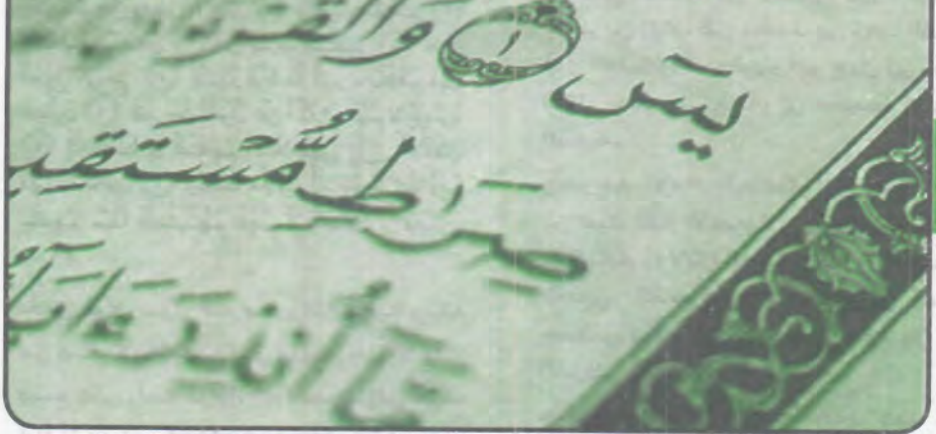 يسٓ ١ وَٱلۡقُرۡءَانِ
صِرَٰطٖ مُّسۡتَقِيمٖ
مَّآ أُنذِرَ ءَابَآؤُ